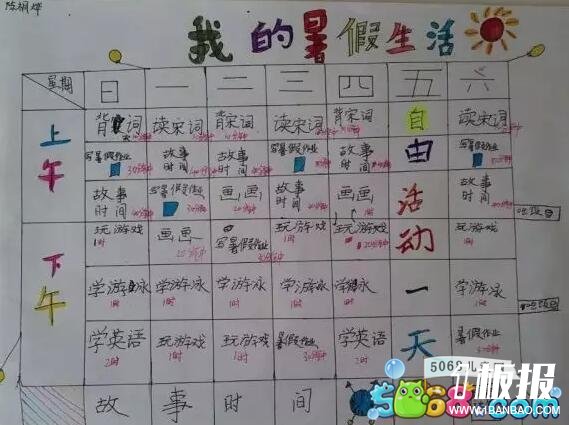 陈栩烨
我的暑假生活
星期 日 一 二 三 四 五 六
上午
背宋词 读宋词 背宋词 读宋词 背宋词 读宋词
写暑假作业 故事时间 故事时间 写暑假作业 故事时间 故事时间
故事时间 写暑假作业 画画 故事时间 画画 故事时间
自由活动一天
下午
玩游戏 1时 画画 写暑假作业 玩游戏 1时 玩游戏 玩游戏 1时
学游泳 1时 学游泳 1时 学游泳 1时 学游泳 1时 学游泳 1时 学游泳 1时
学英语 2时 玩游戏 1时 玩游戏 1时 暑假作业 学英语 2时 暑假作业
故事时间
吃饭
5068儿
板报
5068.com
www.1BANBAO.COM